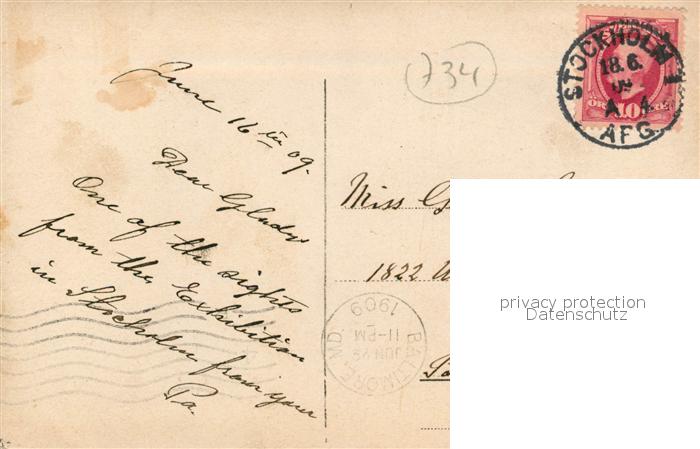 734
STOCKHOLM 1
18.6.
09
A 4
AFG.
10
June 16th 09.
Dear Gladys
One of the sights
from the Exhibition
in Stocholm from your
Pa.
Miss G
1822
BALTIMORE, MD.
JUN 28
11-PM
1909
privacy protection
Datenschutz